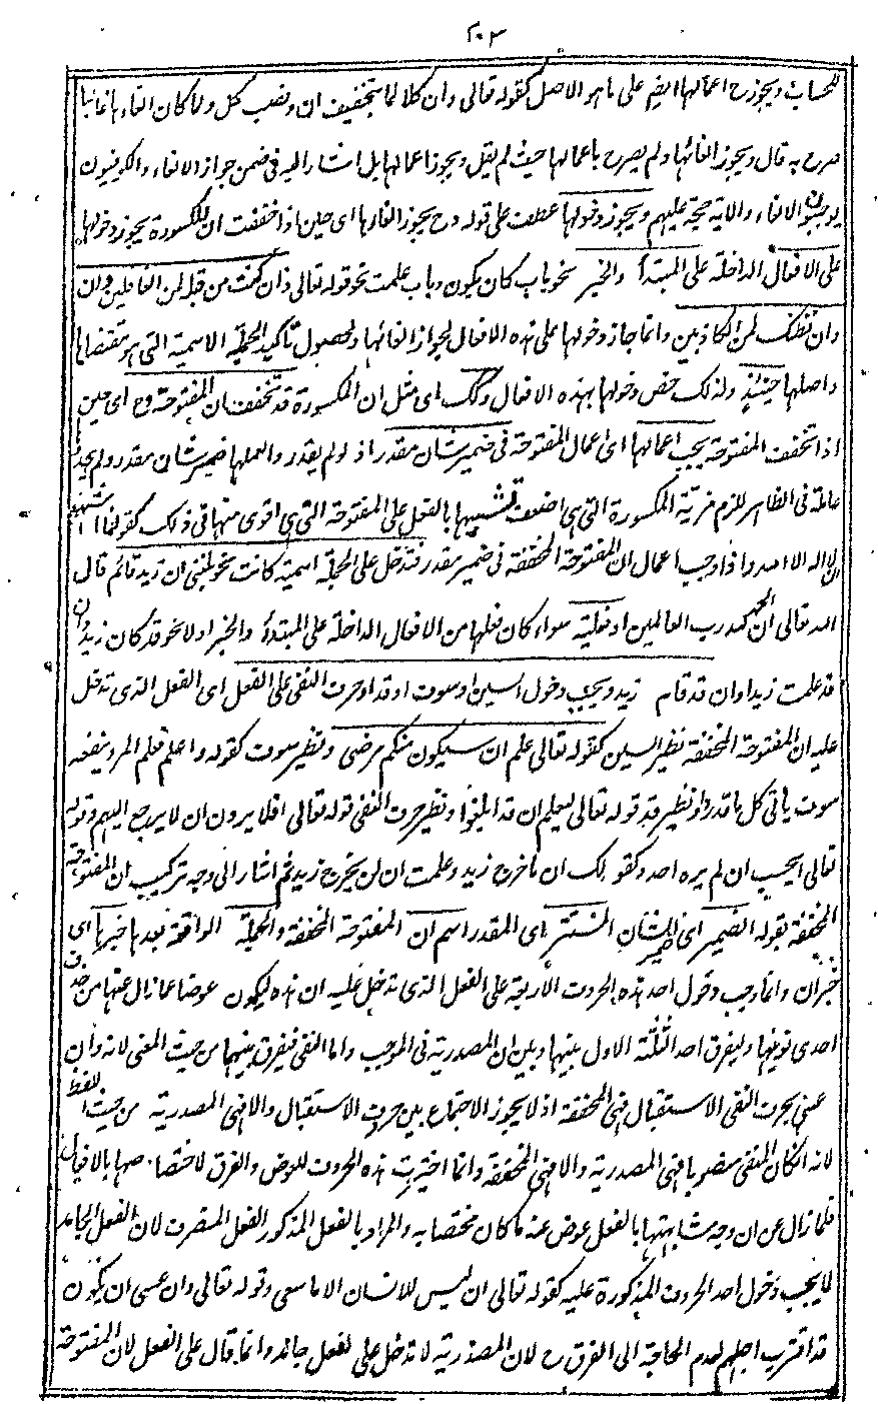 ٢٠٣
للحساب ويجوز ح اعمالها ايضم على ما هو الاصل كقوله تعالى وان كلا لما بتخفيف ان ونصب كل ولما كان الغاءها غالبا
صرح به قال ويجوز الغائها ولم يصرح باعمالها حيث لم يقل ويجوز اعمالها بل اشار اليه فى ضمن جواز الالغاء والكوفيون
يوجبون الالغاء والآية حجة عليهم ويجوز دخولها عطف على قوله وح يجوز الغاءها اى حين اذا خففت ان المكسورة يجوز دخولها
على الافعال الداخلة على المبتدأ والخبر نحو باب كان يكون وباب علمت نحو قوله تعالى وان كنت من قبله لمن الغافلين وان
وان نظنك لمن الكاذبين وانما جاز دخولها على هذه الافعال لجواز الغائها ولحصول تاكيد الجملة الاسمية التى هو مقتضاها
واصلها حينئذ ولذلك خص دخولها بهذه الافعال وكك اى مثل ان المكسورة قد تخفف ان المفتوحة وح اى حين
اذا تخفف المفتوحة يجب اعمالها اى اعمال المفتوحة فى ضمير شان مقدر اذ لو لم يقدر والعملها ضمير شان مقدر ولم يجد
عاملة فى الظاهر للزم مزية المكسورة التى هى اضعف تشبيها بالفعل على المفتوحة التى هى اقوى منها فى ذلك كقولنا اشهد
ان لا اله الا الله واذا وجب اعمال ان المفتوحة المخففة فى ضمير مقدر فتدخل على الجملة اسمية كانت نحو بلغنى ان زيد قائم قال
الله تعالى ان الحمد لله رب العالمين او فعلية سواء كان فعلها من الافعال الداخلة على المبتدأ والخبر اولا نحو قد كان زيد وان
قد علمت زيدا وان قد قام زيد ويجب دخول السين او سوف او قد او حرف النفى على الفعل اى الفعل الذى تدخل
عليه ان المفتوحة المخففة نظير السين كقوله تعالى علم ان سيكون منكم مرضى ونظير سوف كقوله واعلم فعلم المرء ينفعه
سوف ياتى كل ما قدرا ونظير قد قوله تعالى ليعلم ان قد ابلغوا ونظير حرف النفى قوله تعالى افلا يرون ان لا يرجع اليهم وقوله
تعالى ايحسب ان لم يره احد وكقولك ان ما خرج زيد وعلمت ان لن يخرج زيد ثم اشار الى وجه تركيب ان المفتوحة
المخففة بقوله الضمير اى ضمير الشان المستتر اى المقدر اسم ان المفتوحة المخففة والجملة الواقعة بعدها خبرها اى
خبر ان وانما وجب دخول احد هذه الحروف الاربعة على الفعل الذى تدخل عليه ان هذه ليكون عوضا عما زال عنها من حذف
احدى نونيها وليفرق احد الثلثة الاول بينها وبين ان المصدرية فى الموجب واما النفى فيفرق بينهما من حيث المعنى لانه وان
عنى بحرف النفى الاستقبال فهى المخففة اذ لا يجوز الاجتماع بين حرفى الاستقبال والا فهى المصدرية من حيث اللفظ
لانه ان كان المنفى منصوبا فهى المصدرية والا فهى المخففة وانما اختيرت هذه الحروف للعوض والفرق لاختصاصها بالافعال
فلما زال عن ان وجه مشابهتها بالفعل عوض عنه ما كان مختصا به والمراد بالفعل المذكور الفعل المتصرف لان الفعل الجامد
لا يجب دخول احد الحروف المذكورة عليه كقوله تعالى ان ليس للانسان الا ما سعى وقوله تعالى وان عسى ان يكون
قد اقترب اجلهم لعدم الحاجة الى الفرق ح لان المصدرية لا تدخل على لفعل جامد وانما قال على الفعل لان المفتوحة